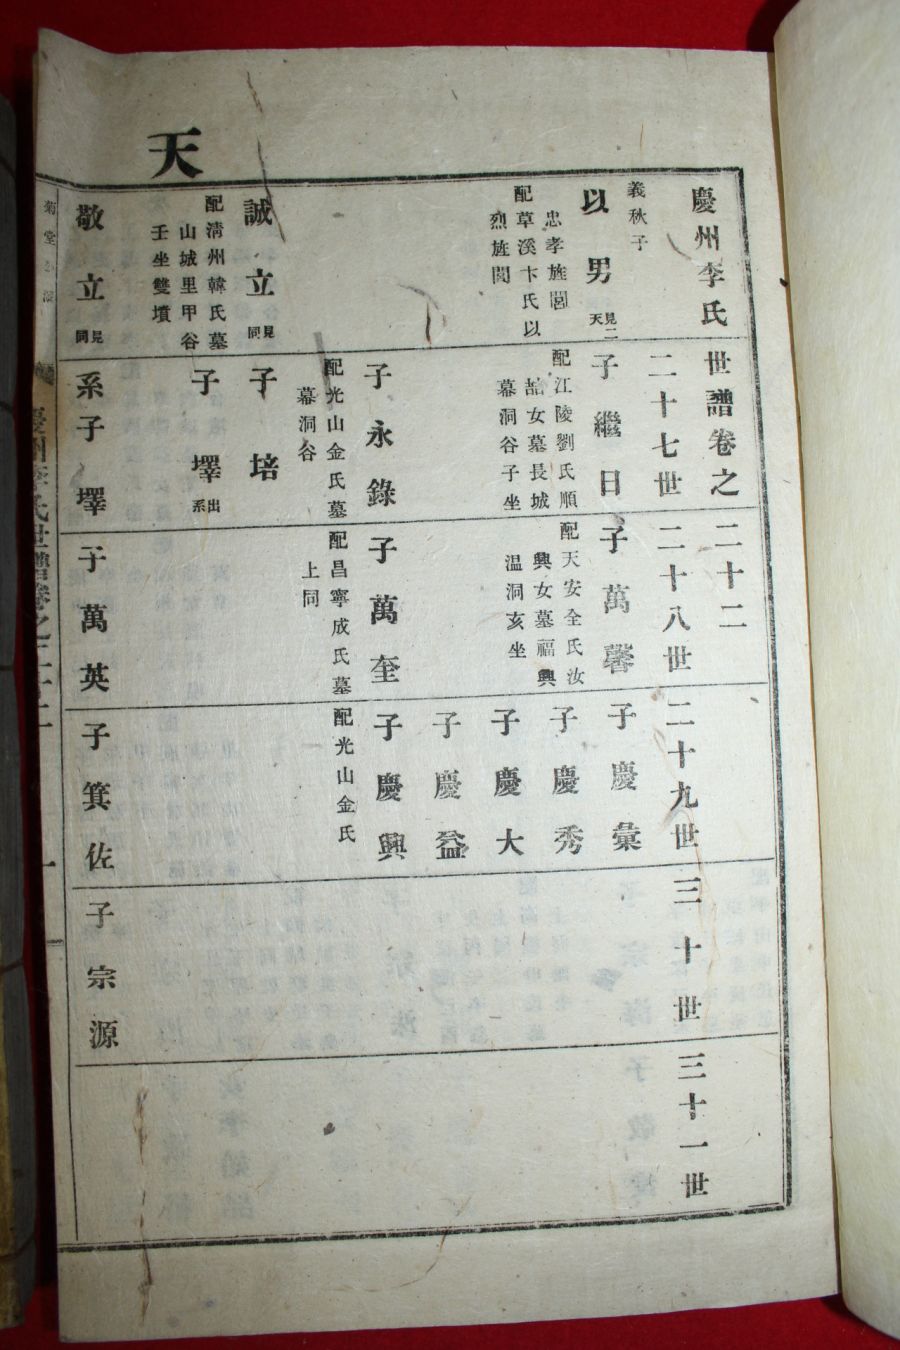 天
慶州李氏世譜卷之二十二
二十七世
二十八世
二十九世
三十世
三十一世
義秋子
以男
見二
天
忠孝旌閭
配草溪卞氏以
烈旌閭
誠立
見
同
配清州韓氏墓
山城里甲谷
壬坐雙墳
敬立
見
同
子繼日
配江陵劉氏順
喆女墓長城
幕洞谷子坐
子永錄
配光山金氏墓
幕洞谷
子培
子墿
出
系
系子墿
子萬馨
配天安全氏汝
興女墓福興
温洞亥坐
子萬奎
配昌寧成氏墓
上同
子萬英
子慶彙
子慶秀
子慶大
子慶益
子慶興
配光山金氏
子箕佐
子宗源
菊堂公派
慶州李氏世譜卷之二十二
一